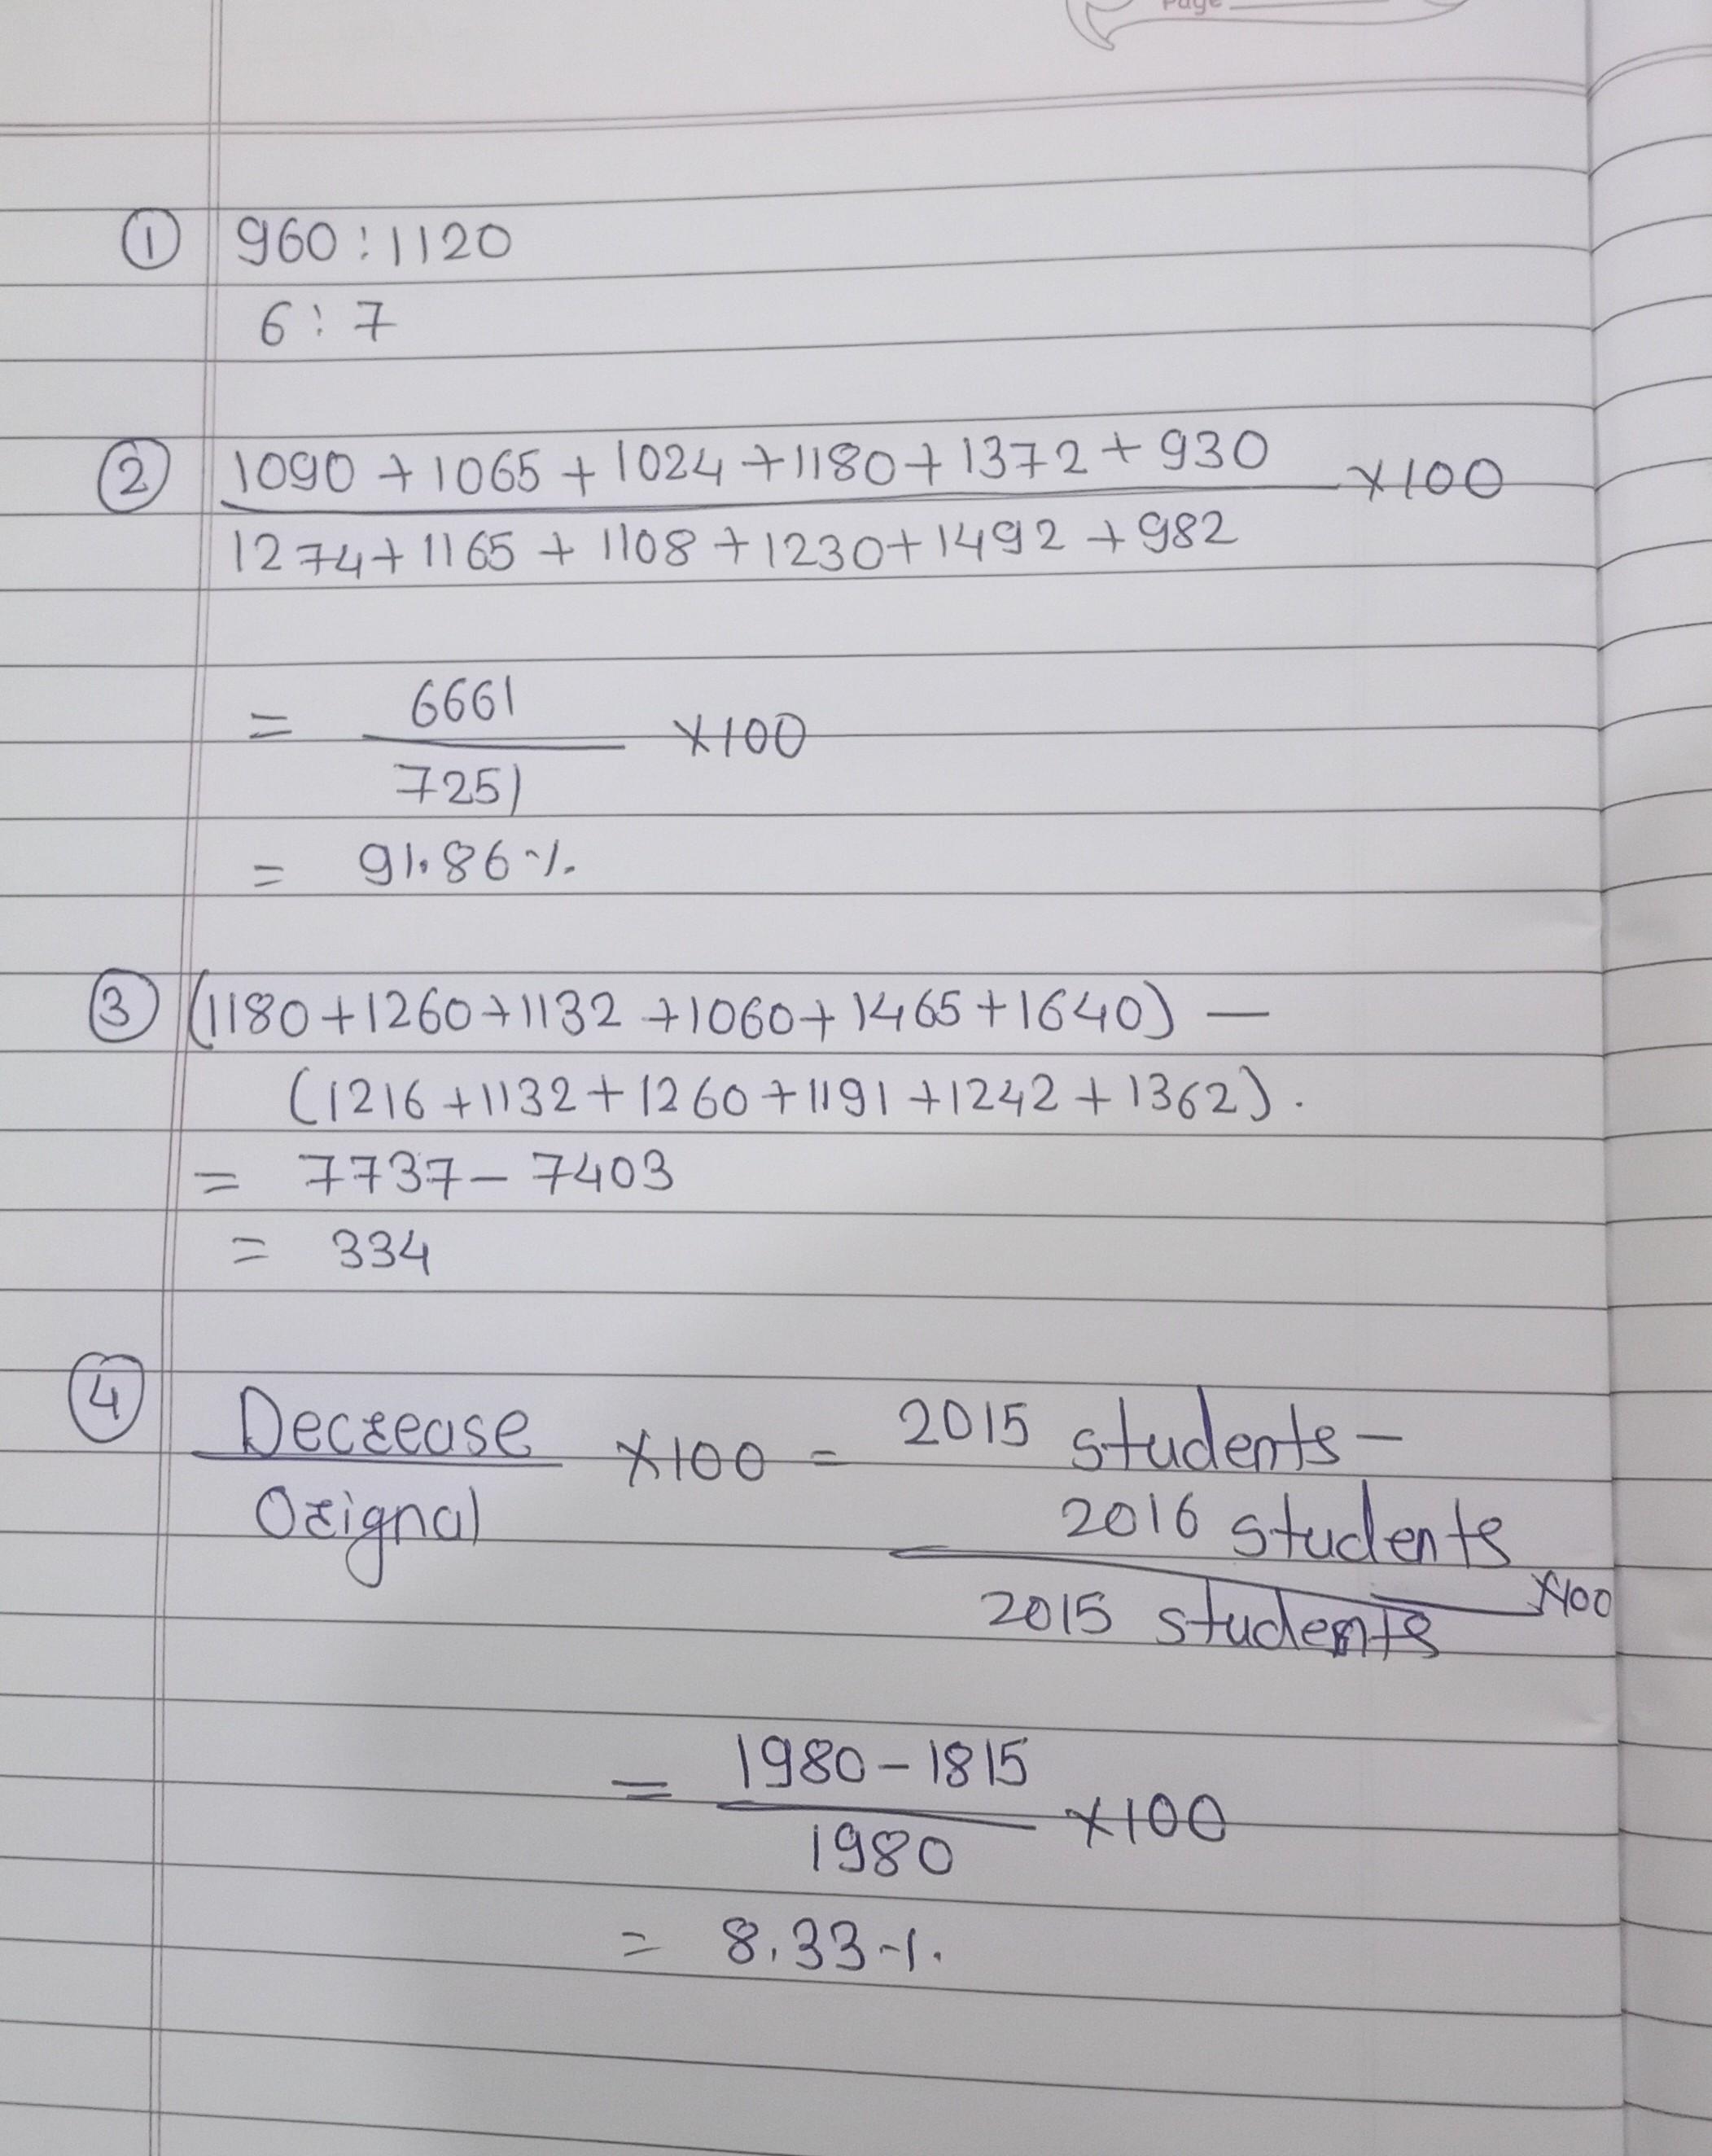 Page
① 960 : 1120
6 : 7
② 1090 + 1065 + 1024 + 1180 + 1372 + 930 × 100
1274 + 1165 + 1108 + 1230 + 1492 + 982
= 6661 × 100
7251
= 91.86 %
③ (1180 + 1260 + 1132 + 1060 + 1465 + 1640) –
(1216 + 1132 + 1260 + 1191 + 1242 + 1362).
= 7737 – 7403
= 334
④ Decrease × 100 = 2015 students –
Orignal 2016 students × 100
2015 students
= 1980 – 1815 × 100
1980
= 8.33 %